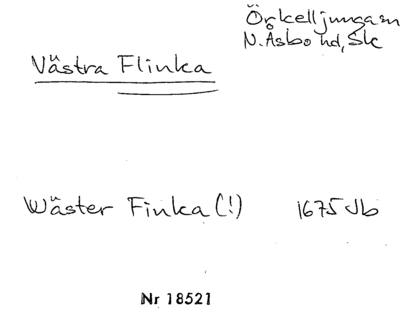 Örkelljunga sn
N. Åsbo hd, Sk
Västra Flinka
Wäster Finka (!) 1675 Jb
Nr 18521